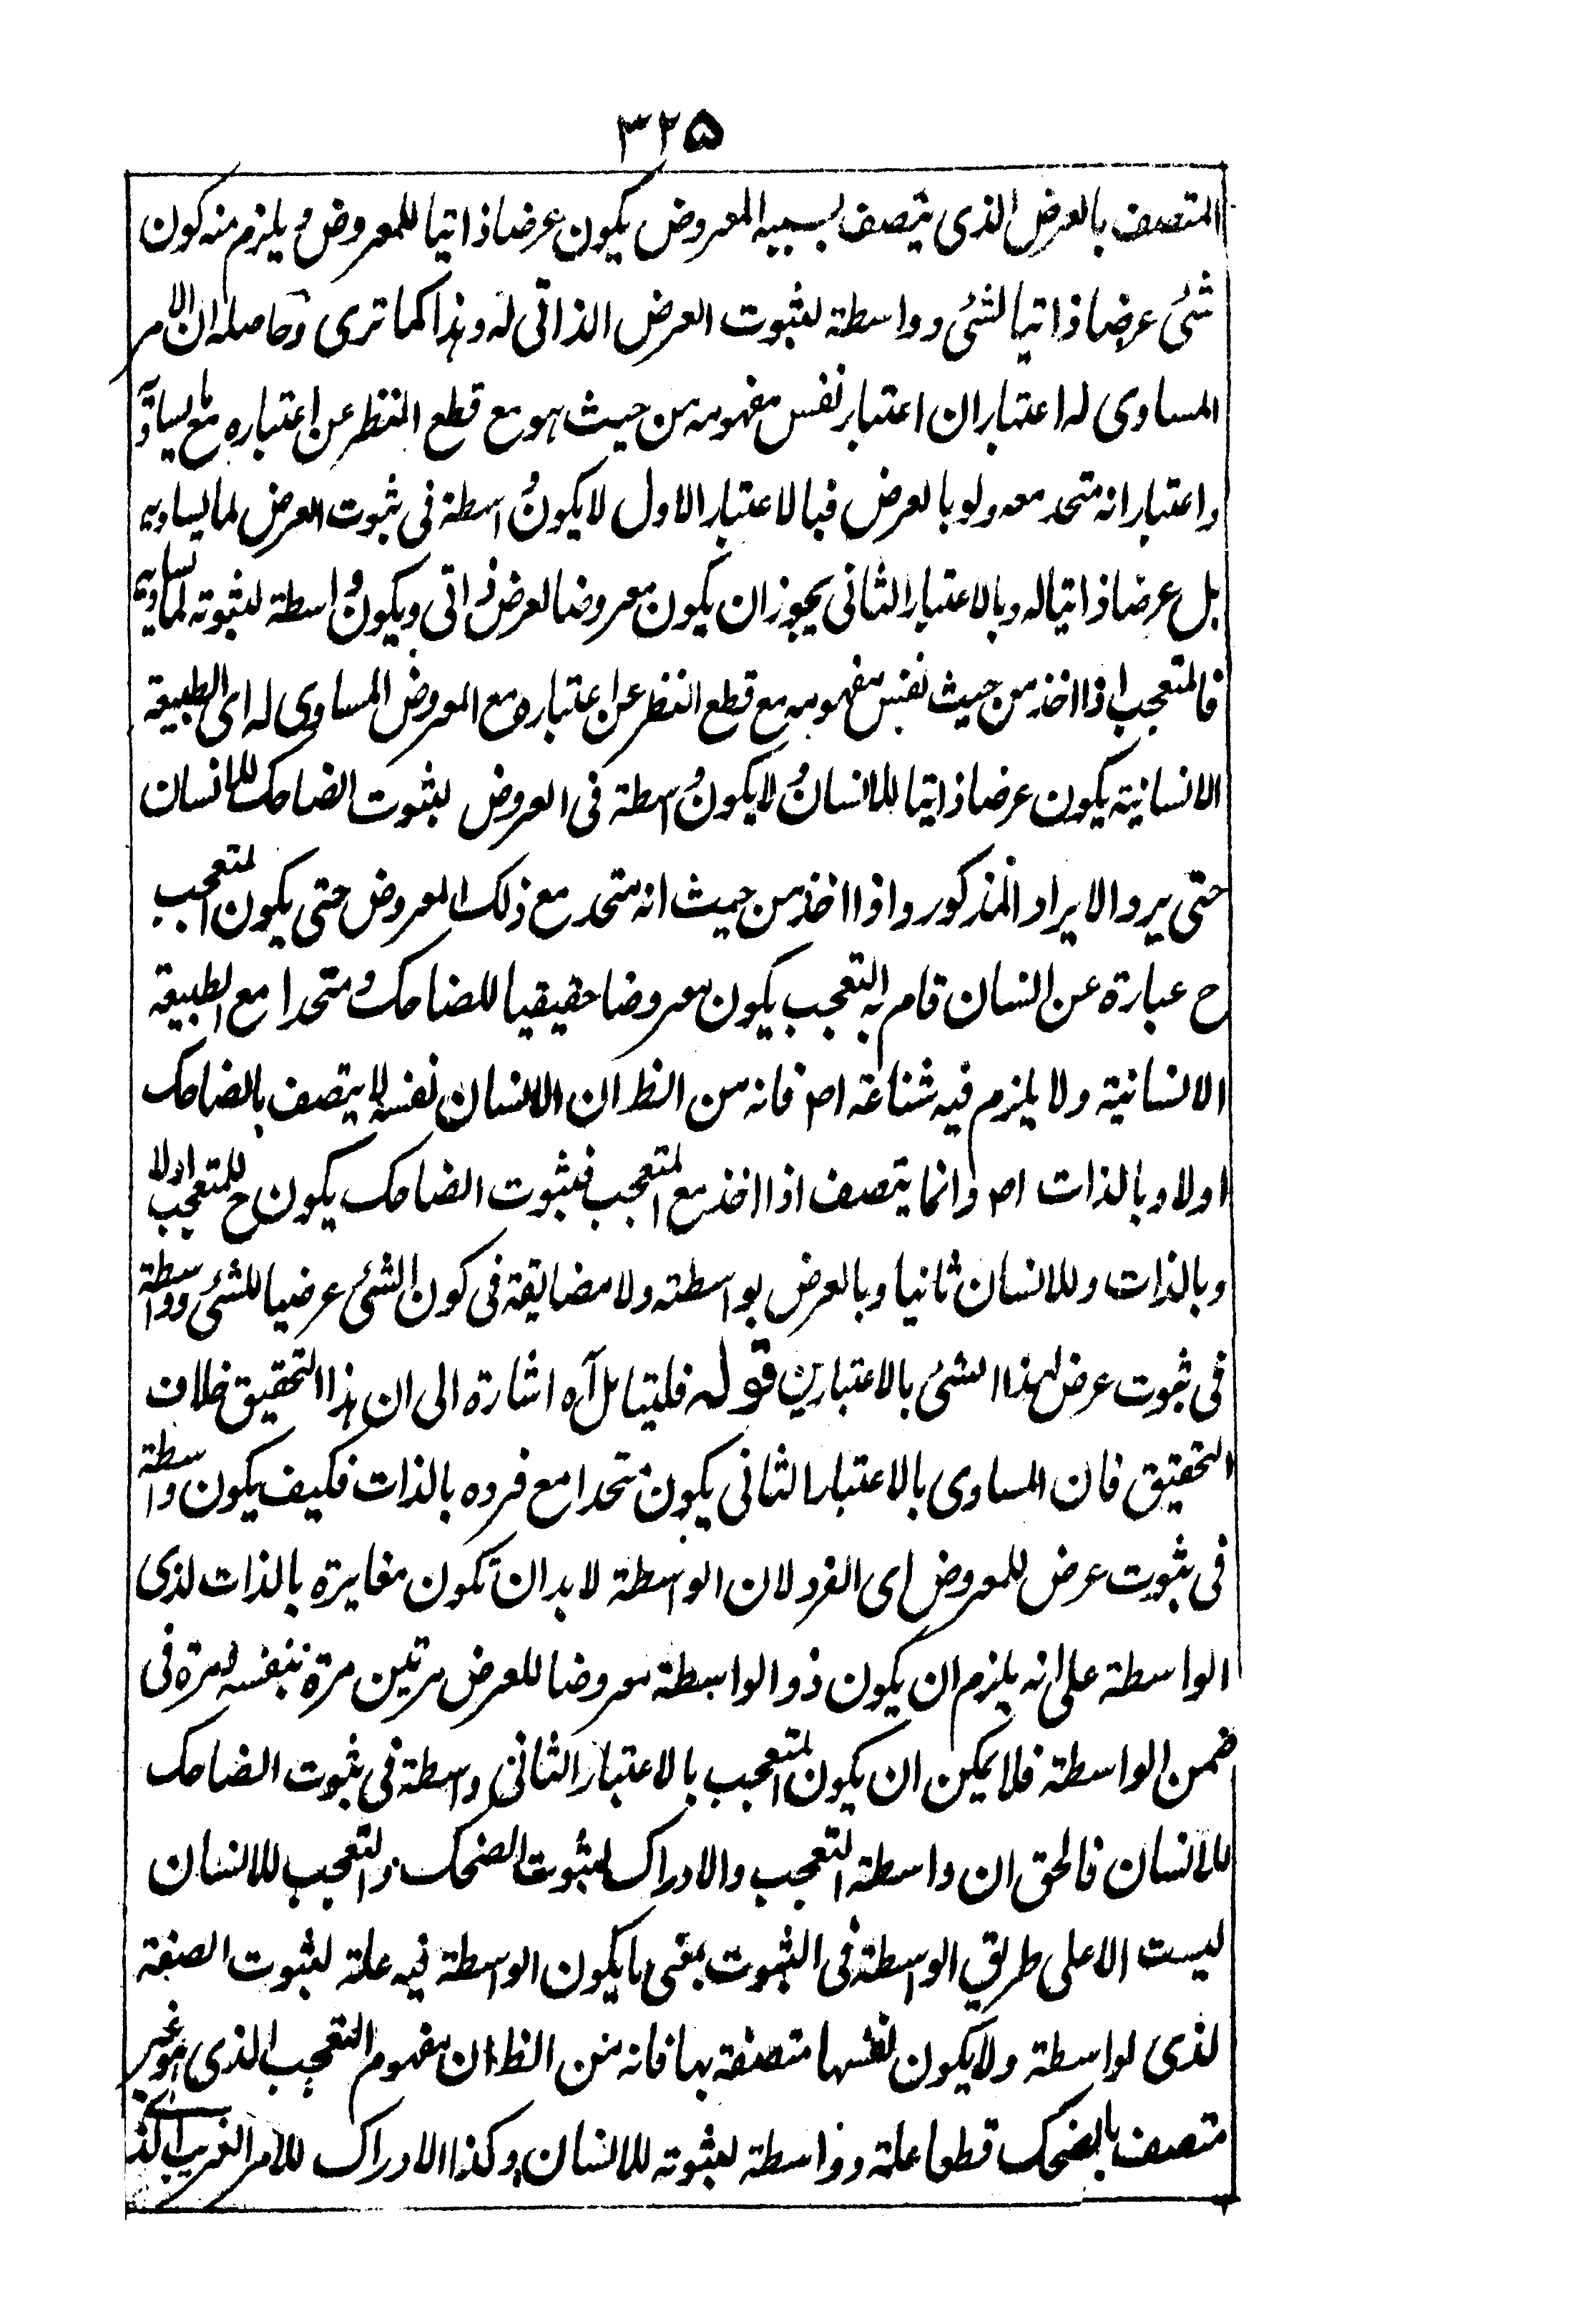 ٣٢٥
المتصف بالعرض الذى يتصف بسببه المعروض يكون عرضا ذاتيا للمعروض و يلزم منه كون
شئ عرضا ذاتيا لشئ و واسطة لثبوت العرض الذاتى له وهذا كما ترى وحاصله ان الامر
المساوى له اعتباران اعتبار نفس مفهومه من حيث هو مع قطع النظر عن اعتباره مع ما يساويه
واعتبار انه متحد معه ولو بالعرض فبالاعتبار الاول لا يكون واسطة فى ثبوت العرض لما يساويه
بل عرضا ذاتيا له وبالاعتبار الثانى يجوز ان يكون معروضا لعرض ذاتى ويكون واسطة لثبوته لما يساويه
فالمتعجب اذا اخذ من حيث نفس مفهومه مع قطع النظر عن اعتباره مع المعروض المساوى له اى الطبيعة
الانسانية يكون عرضا ذاتيا للانسان و لا يكون واسطة فى العروض لثبوت الضاحك للانسان
حتى يرد الايراد المذكور واذا اخذ من حيث انه متحد مع ذلك المعروض حتى يكون المتعجب
ح عبارة عن انسان قام به التعجب يكون معروضا حقيقيا للضاحك و متحدا مع الطبيعة
الانسانية ولا يلزم فيه شناعة اصلا فانه من الظ ان الانسان نفسه لا يتصف بالضاحك
اولا وبالذات اصلا وانما يتصف اذا اخذ مع المتعجب فثبوت الضاحك يكون ح للمتعجب اولا
وبالذات وللانسان ثانيا وبالعرض بواسطته ولا مضايقة فى كون الشئ عرضيا للشئ و واسطة
فى ثبوت عرض لهذا الشئ بالاعتبارين قوله فليتامل آه اشارة الى ان هذا التحقيق خلاف
التحقيق فان المساوى بالاعتبار الثانى يكون متحدا مع فرده بالذات فكيف يكون واسطة
فى ثبوت عرض للمعروض اى الفرد لان الواسطة لا بد ان تكون مغايرة بالذات لذى
الواسطة على انه يلزم ان يكون ذو الواسطة معروضا للعرض مرتين مرة بنفسه و مرة فى
ضمن الواسطة فلا يمكن ان يكون المتعجب بالاعتبار الثانى واسطة فى ثبوت الضاحك
للانسان فالحق ان واسطة التعجب والادراك لثبوت الضحك والتعجب للانسان
ليست الا على طريق الواسطة فى الثبوت بمعنى ما يكون الواسطة فيه علة لثبوت الصفة
لذى لواسطة ولا يكون نفسها متصفة بها فانه من الظ ان مفهوم التعجب الذى هو غير
متصف بالضحك قطعا علة و واسطة لثبوته للانسان و كذا الادراك للامر الغريب الذى